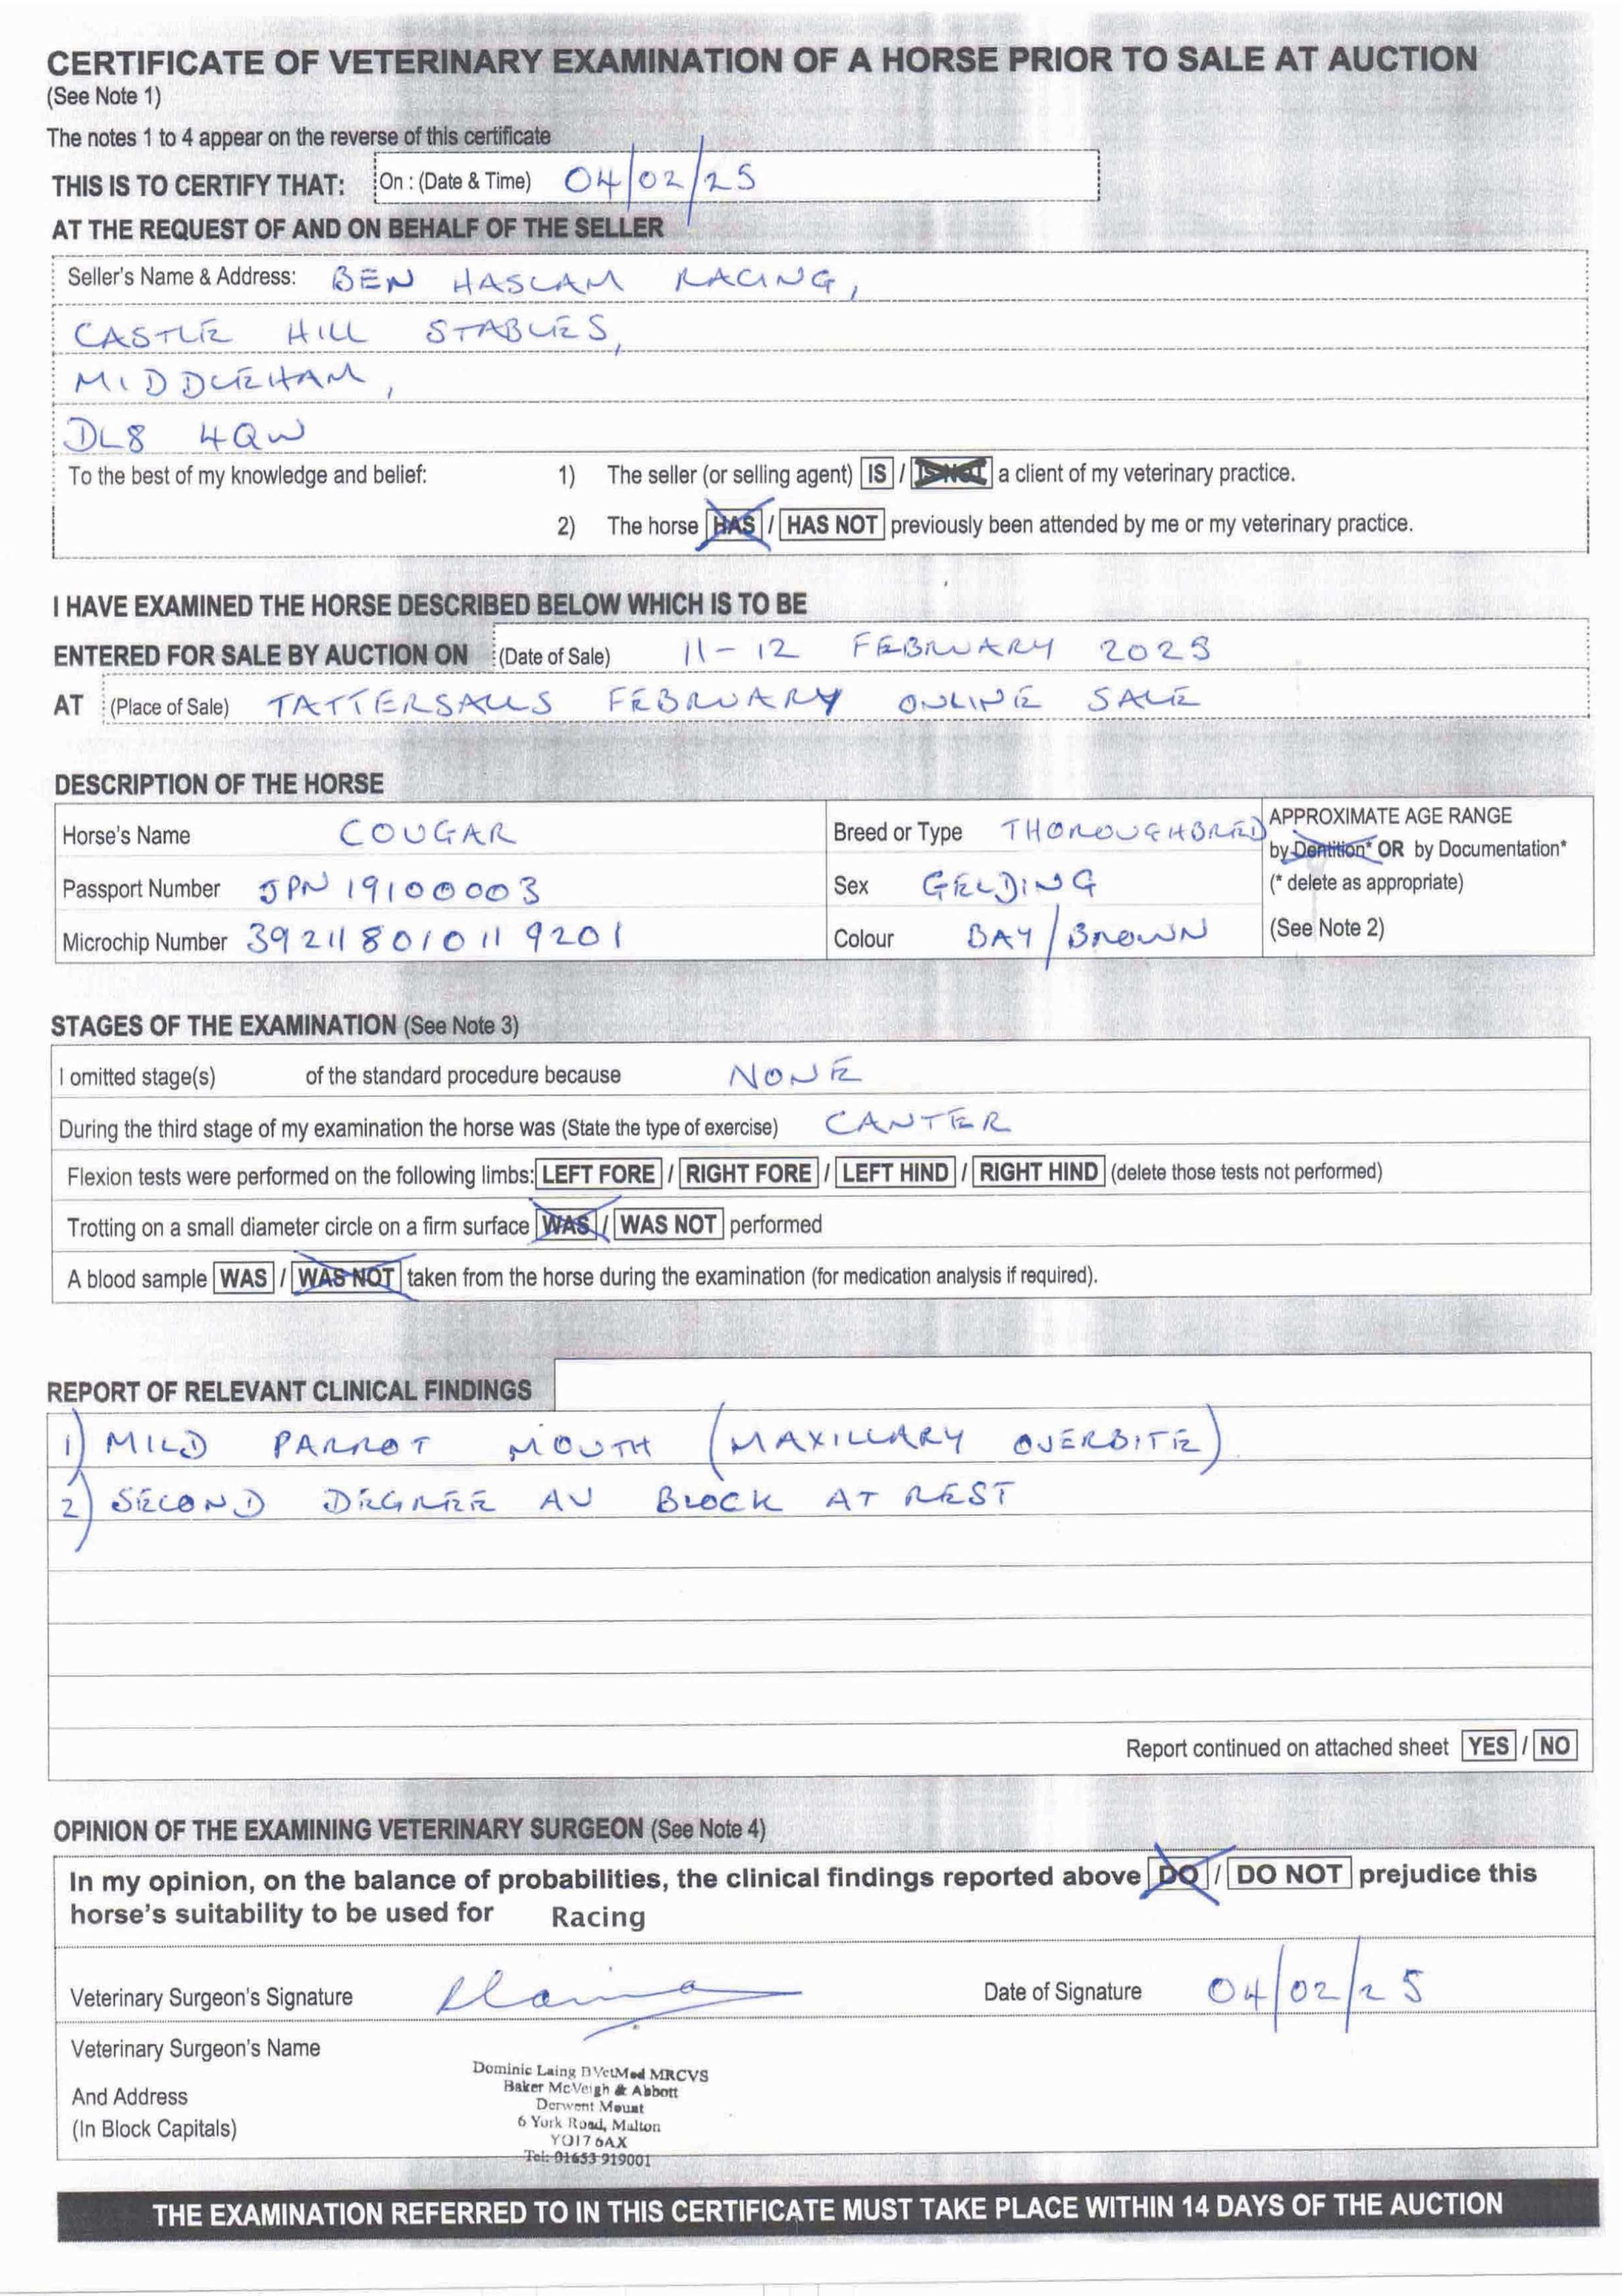 CERTIFICATE OF VETERINARY EXAMINATION OF A HORSE PRIOR TO SALE AT AUCTION
(See Note 1)
The notes 1 to 4 appear on the reverse of this certificate
THIS IS TO CERTIFY THAT: On : (Date & Time) 04/02/25
AT THE REQUEST OF AND ON BEHALF OF THE SELLER
Seller's Name & Address: BEN HASLAM RACING,
CASTLE HILL STABLES,
MIDDLEHAM,
DL8 4QW
To the best of my knowledge and belief: 1) The seller (or selling agent) IS / IS NOT a client of my veterinary practice.
2) The horse HAS / HAS NOT previously been attended by me or my veterinary practice.
I HAVE EXAMINED THE HORSE DESCRIBED BELOW WHICH IS TO BE
ENTERED FOR SALE BY AUCTION ON (Date of Sale) 11-12 FEBRUARY 2025
AT (Place of Sale) TATTERSALLS FEBRUARY ONLINE SALE
DESCRIPTION OF THE HORSE
Horse's Name COUGAR Breed or Type THOROUGHBRED APPROXIMATE AGE RANGE
by Dentition* OR by Documentation*
Passport Number JPN 19100003 Sex GELDING (* delete as appropriate)
Microchip Number 392118010119201 Colour BAY/BROWN (See Note 2)
STAGES OF THE EXAMINATION (See Note 3)
I omitted stage(s) of the standard procedure because NONE
During the third stage of my examination the horse was (State the type of exercise) CANTER
Flexion tests were performed on the following limbs: LEFT FORE / RIGHT FORE / LEFT HIND / RIGHT HIND (delete those tests not performed)
Trotting on a small diameter circle on a firm surface WAS / WAS NOT performed
A blood sample WAS / WAS NOT taken from the horse during the examination (for medication analysis if required).
REPORT OF RELEVANT CLINICAL FINDINGS
1) MILD PARROT MOUTH (MAXILLARY OVERBITE)
2) SECOND DEGREE AV BLOCK AT REST
Report continued on attached sheet YES / NO
OPINION OF THE EXAMINING VETERINARY SURGEON (See Note 4)
In my opinion, on the balance of probabilities, the clinical findings reported above DO / DO NOT prejudice this
horse's suitability to be used for Racing
Veterinary Surgeon's Signature Date of Signature 04/02/25
Veterinary Surgeon's Name
And Address
(In Block Capitals)
Dominic Laing BVetMed MRCVS
Baker McVeigh & Abbott
Derwent Mount
6 York Road, Malton
YO17 6AX
Tel: 01653 919001
THE EXAMINATION REFERRED TO IN THIS CERTIFICATE MUST TAKE PLACE WITHIN 14 DAYS OF THE AUCTION